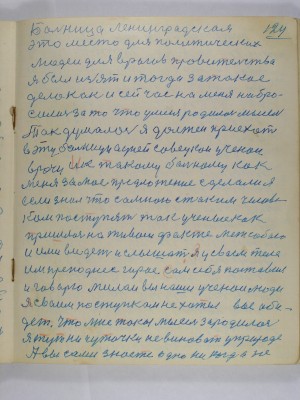 124
Больница Ленинградская
это место для политических
людей для врагов правительства
я был изъят и тогда за такое
дело как и сейчас на меня набро-
сились за то что у меня родилась мысель
Так думалось я должен приехать
в эту больницу а дней советуем ученом
врачу как такому больному как
меня за мое предложение сделали я
если знал что со мною с таким челове-
ком поступят так ученые как
пришлось на живом факте
и им видеть и слышать я у своем теле
им преподнес горе, сам себя поставил
и говорю милои вы наши ученои люди
я своим поступком не хотел вас оби-
деть, что мне такая мысель зародилася
я тут ни чуточки не виноват у природе
А вы сами знаете одно ни когда не